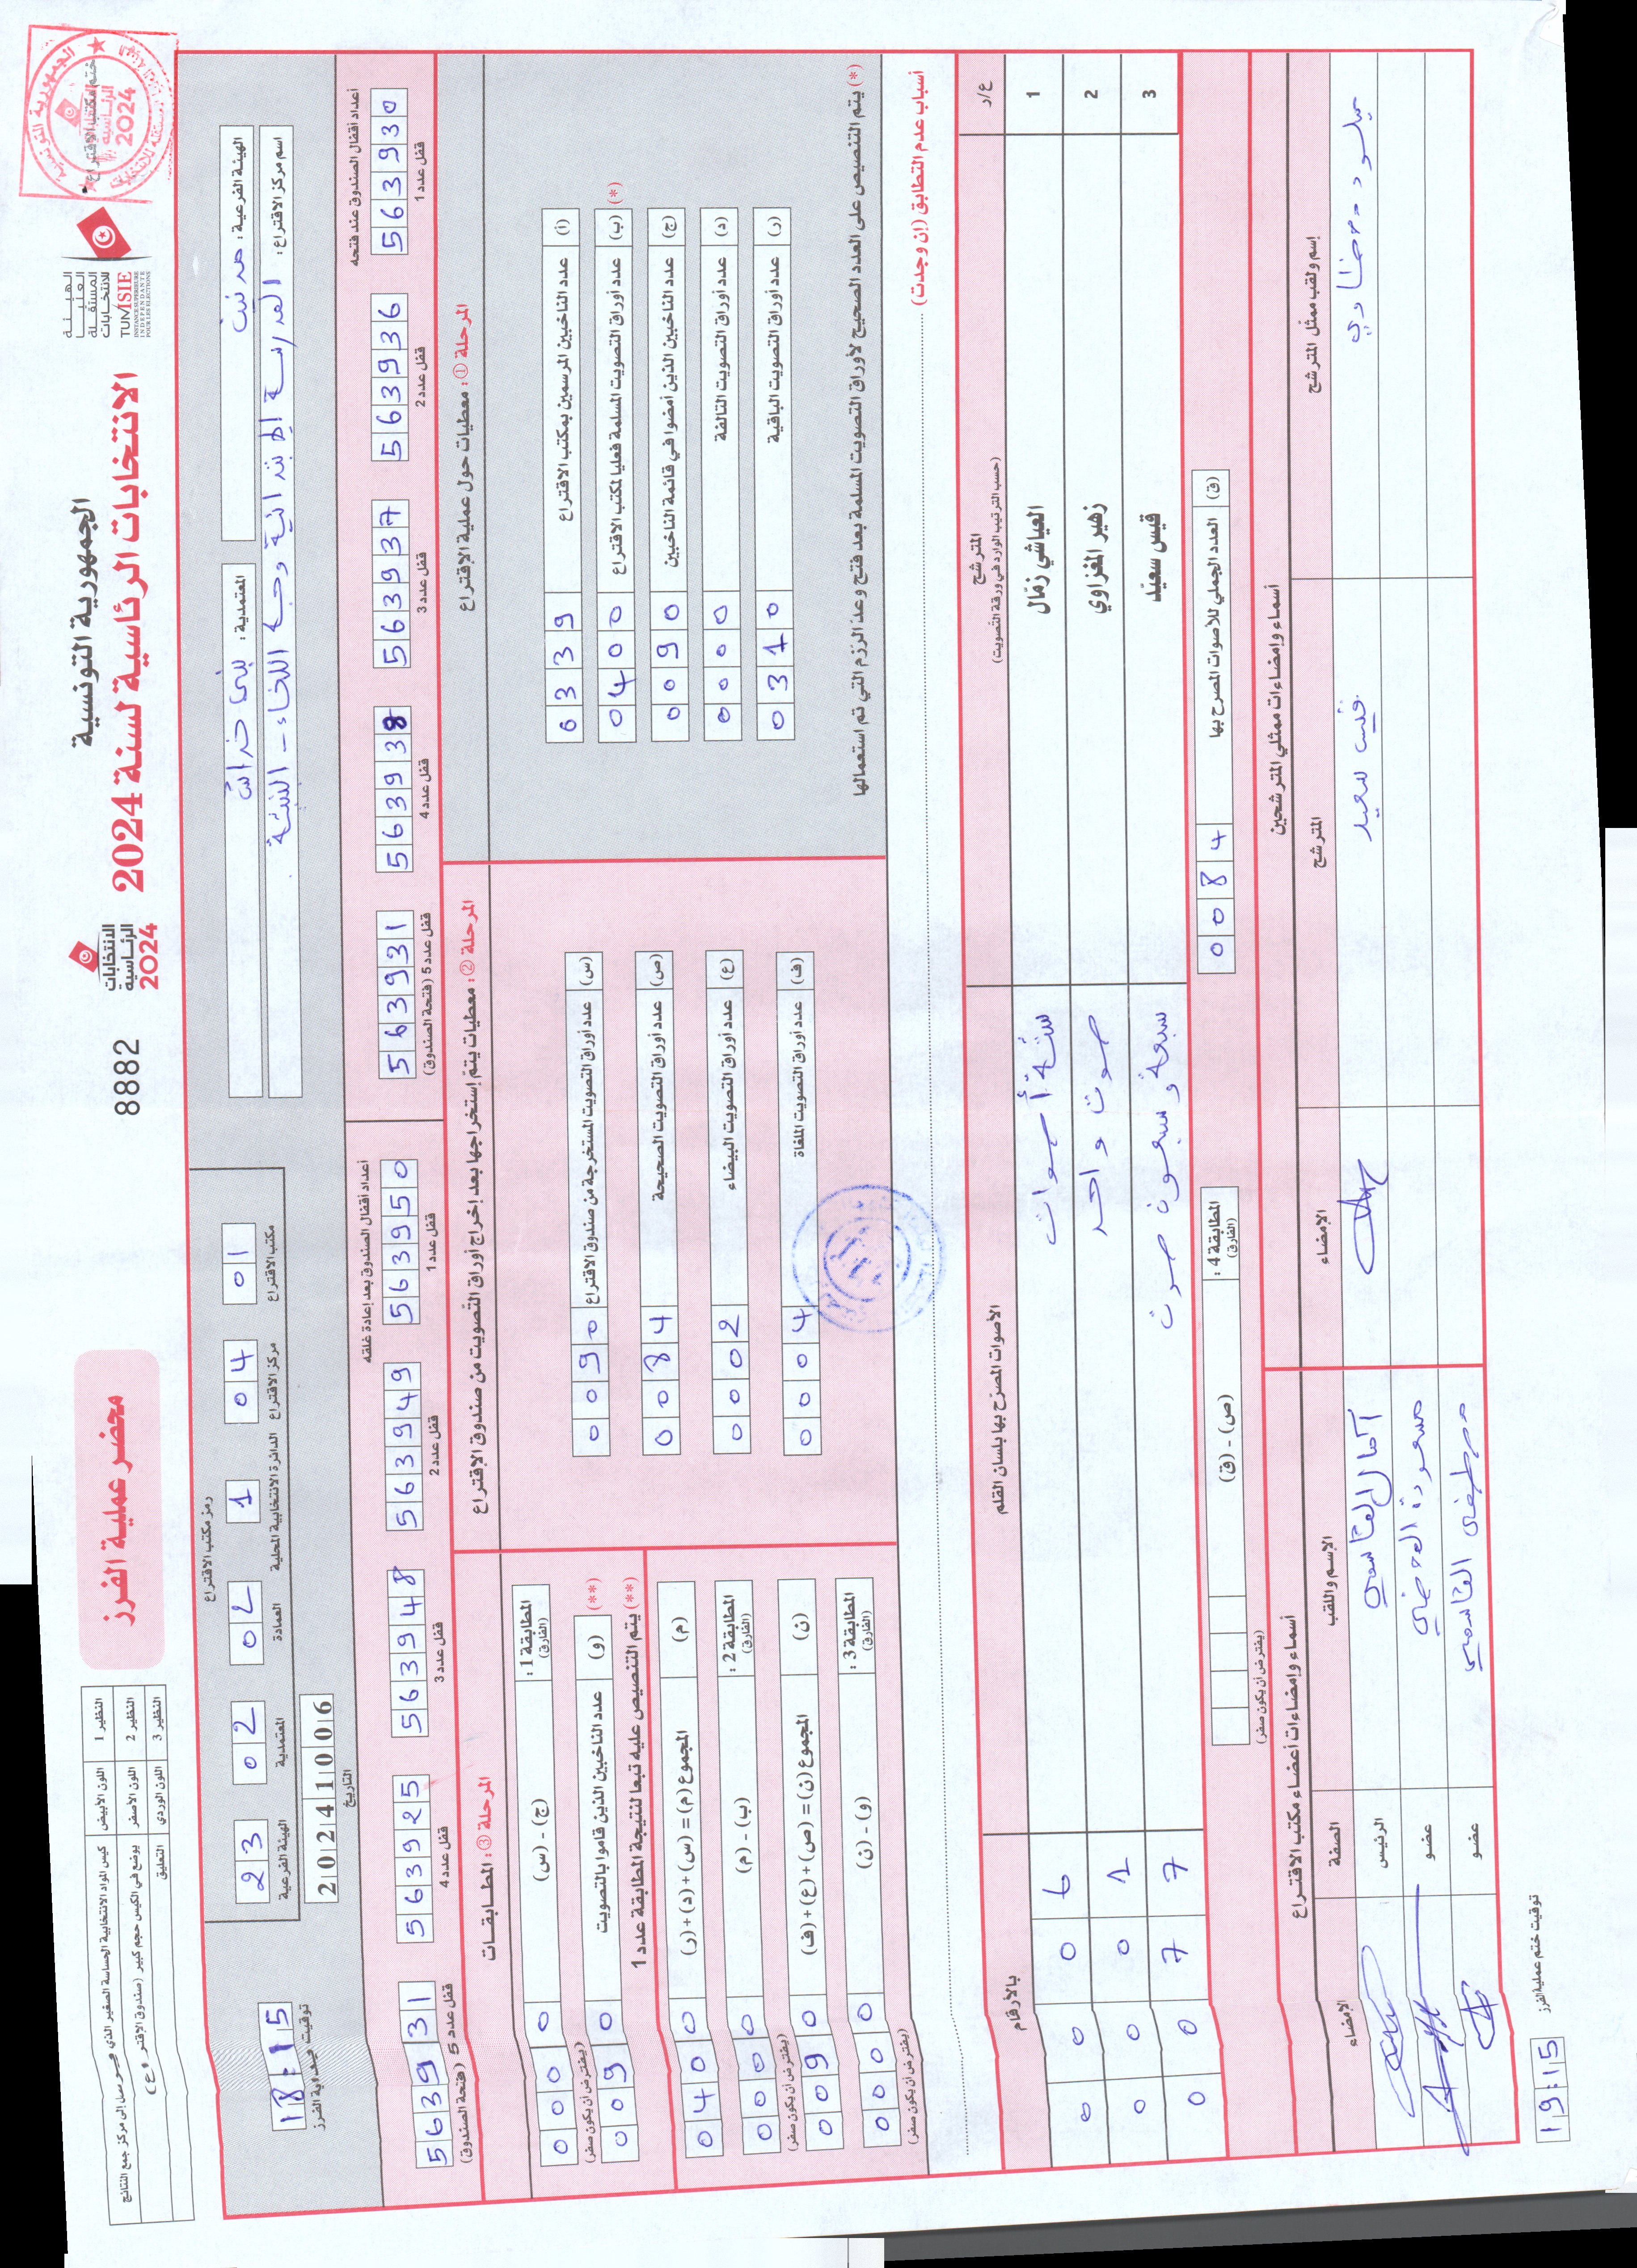 الجمهورية التونسية
الانتخابات الرئاسية لسنة 2024
محضر عملية الفرز
8882
الانتخابات
الرئاسية
2024
الهيئة
العليا
المستقلة
للانتخابات
TUNISIE
INSTANCE SUPERIEURE
INDEPENDANTE
POUR LES ELECTIONS
ختم مكتب الاقتراع
النظير 1 اللون الأبيض
النظير 2 اللون الأصفر
النظير 3 اللون الوردي التعليق
الهيئة الفرعية : مدنين
المعتمدية : بني خداش
اسم مركز الاقتراع : المدرسة الابتدائية
رمز مكتب الاقتراع
23 02 02 1 04 01
الهيئة الفرعية المعتمدية العمادة الدائرة الانتخابية المحلية مركز الاقتراع مكتب الاقتراع
20241006
التاريخ
18:15
توقيت بداية الفرز
أعداد أقفال الصندوق عند فتحه
563930 563936 563937 563938 563931
قفل عدد 1 قفل عدد 2 قفل عدد 3 قفل عدد 4 قفل عدد 5 (فتحة الصندوق)
أعداد أقفال الصندوق بعد إعادة غلقه
563950 563949 563948 563925 563931
قفل عدد 1 قفل عدد 2 قفل عدد 3 قفل عدد 4 قفل عدد 5 (فتحة الصندوق)
المرحلة ① : معطيات حول عملية الإقتراع
(أ) عدد الناخبين المرسمين بمكتب الاقتراع 6339
(ب) عدد أوراق التصويت المسلمة فعليا لمكتب الاقتراع 0400 (*)
(ج) عدد الناخبين الذين أمضوا في قائمة الناخبين 0090
(د) عدد أوراق التصويت التالفة 0000
(ر) عدد أوراق التصويت الباقية 0310
(*) يتم التنصيص على العدد الصحيح لأوراق التصويت المسلمة بعد فتح وعد الرزم التي تم استعمالها
المرحلة ② : معطيات يتم إستخراجها بعد إخراج أوراق التصويت من صندوق الإقتراع
(س) عدد أوراق التصويت المستخرجة من صندوق الاقتراع 0090
(ص) عدد أوراق التصويت الصحيحة 0084
(ع) عدد أوراق التصويت البيضاء 0002
(ف) عدد أوراق التصويت الملغاة 0004
المرحلة ③ : المطابقات
المطابقة 1 : (الفارق) (ج) - (س) 0000
(يفترض أن يكون صفر)
(و) عدد الناخبين الذين قاموا بالتصويت 0090 (**)
(**) يتم التنصيص عليه تبعا لنتيجة المطابقة عدد 1
(م) المجموع (م) = (س) + (د) + (ر) 0400
المطابقة 2 : (الفارق) (ب) - (م) 0000
(يفترض أن يكون صفر)
(ن) المجموع (ن) = (ص) + (ع) + (ف) 0090
المطابقة 3 : (الفارق) (و) - (ن) 0000
(يفترض أن يكون صفر)
أسباب عدم التطابق (إن وجدت)
ع/ر المترشح الأصوات المصرح بها بلسان القلم بالأرقام
(حسب الترتيب الوارد في ورقة التصويت)
1 العياشي زمّال ستة أصوات 0006
2 زهير المغزاوي صوت واحد 0001
3 قيس سعيّد سبعة وسبعون صوت 0077
(ق) العدد الجملي للأصوات المصرح بها 0084
المطابقة 4 : (الفارق) (ص) - (ق)
(يفترض أن يكون صفر)
أسماء وإمضاءات ممثلي المترشحين
إسم ولقب ممثل المترشح المترشح الإمضاء
قيس سعيد
أسماء وإمضاءات أعضاء مكتب الاقتراع
الإسم واللقب الصفة الإمضاء
آمال القاسمي الرئيس
عضو
مصطفى القاسمي عضو
توقيت ختم عملية الفرز
19:15